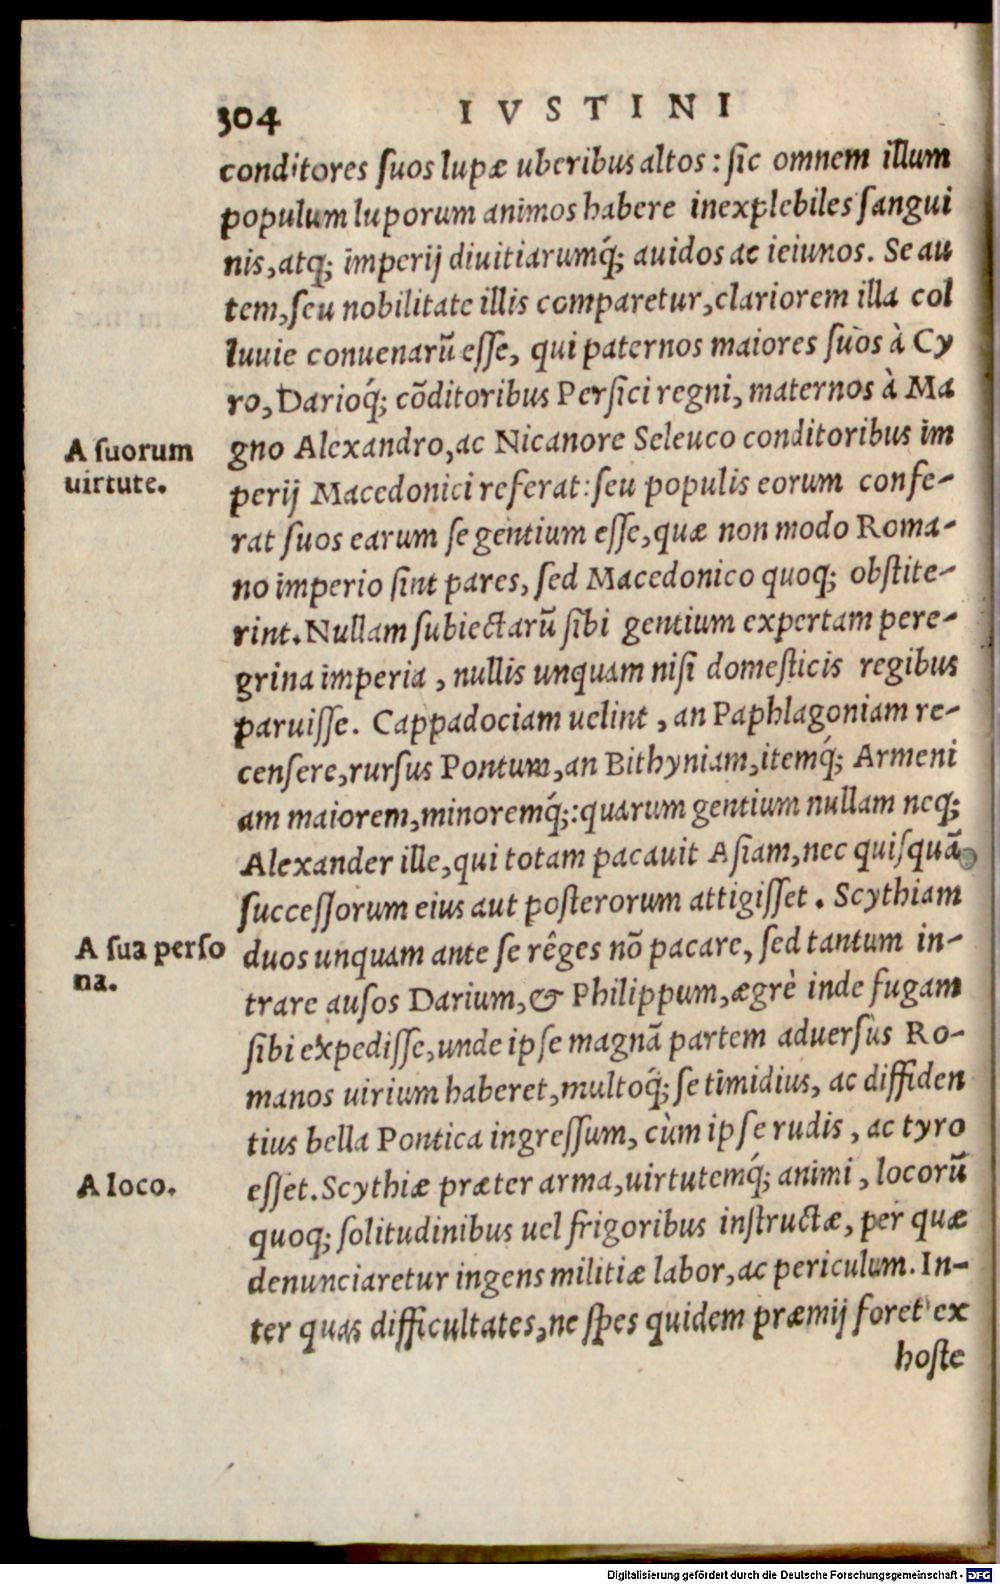 304 IVSTINI
conditores ſuos lupæ uberibus altos : ſic omnem illum
populum luporum animos habere inexplebiles ſangui
nis, atq; imperij diuitiarumq́; auidos ac ieiunos. Se au
tem, ſeu nobilitate illis comparetur, clariorem illa col
luuie conuenarũ eſſe, qui paternos maiores ſuos à Cy
ro, Darioq́; cõditoribus Perſici regni, maternos à Ma
A ſuorum uirtute.
gno Alexandro, ac Nicanore Seleuco conditoribus im
perij Macedonici referat : ſeu populis eorum confe-
rat ſuos earum ſe gentium eſſe, quæ non modo Roma-
no imperio ſint pares, ſed Macedonico quoq; obſtite-
rint. Nullam ſubiectarũ ſibi gentium expertam pere-
grina imperia , nullis unquam niſi domeſticis regibus
paruiſſe. Cappadociam uelint , an Paphlagoniam re-
cenſere, rurſus Pontum, an Bithyniam, itemq́; Armeni
am maiorem, minoremq́; : quarum gentium nullam neq;
Alexander ille, qui totam pacauit Aſiam, nec quiſquã
ſucceſſorum eius aut poſterorum attigiſſet . Scythiam
A ſua perſo
na.
duos unquam ante ſe rêges nõ pacare, ſed tantum in-
trare auſos Darium, & Philippum, ægrè inde fugam
ſibi expediſſe, unde ipſe magnã partem aduerſùs Ro-
manos uirium haberet, multoq́; ſe timidius, ac diffiden
tius bella Pontica ingreſſum, cùm ipſe rudis , ac tyro
A loco.
eſſet. Scythiæ præter arma, uirtutemq́; animi , locorũ
quoq; ſolitudinibus uel frigoribus inſtructæ, per quæ
denunciaretur ingens militiæ labor, ac periculum. In-
ter quas difficultates, ne ſpes quidem præmij foret ex
hoſte
Digitalisierung gefördert durch die Deutsche Forschungsgemeinschaft - DFG